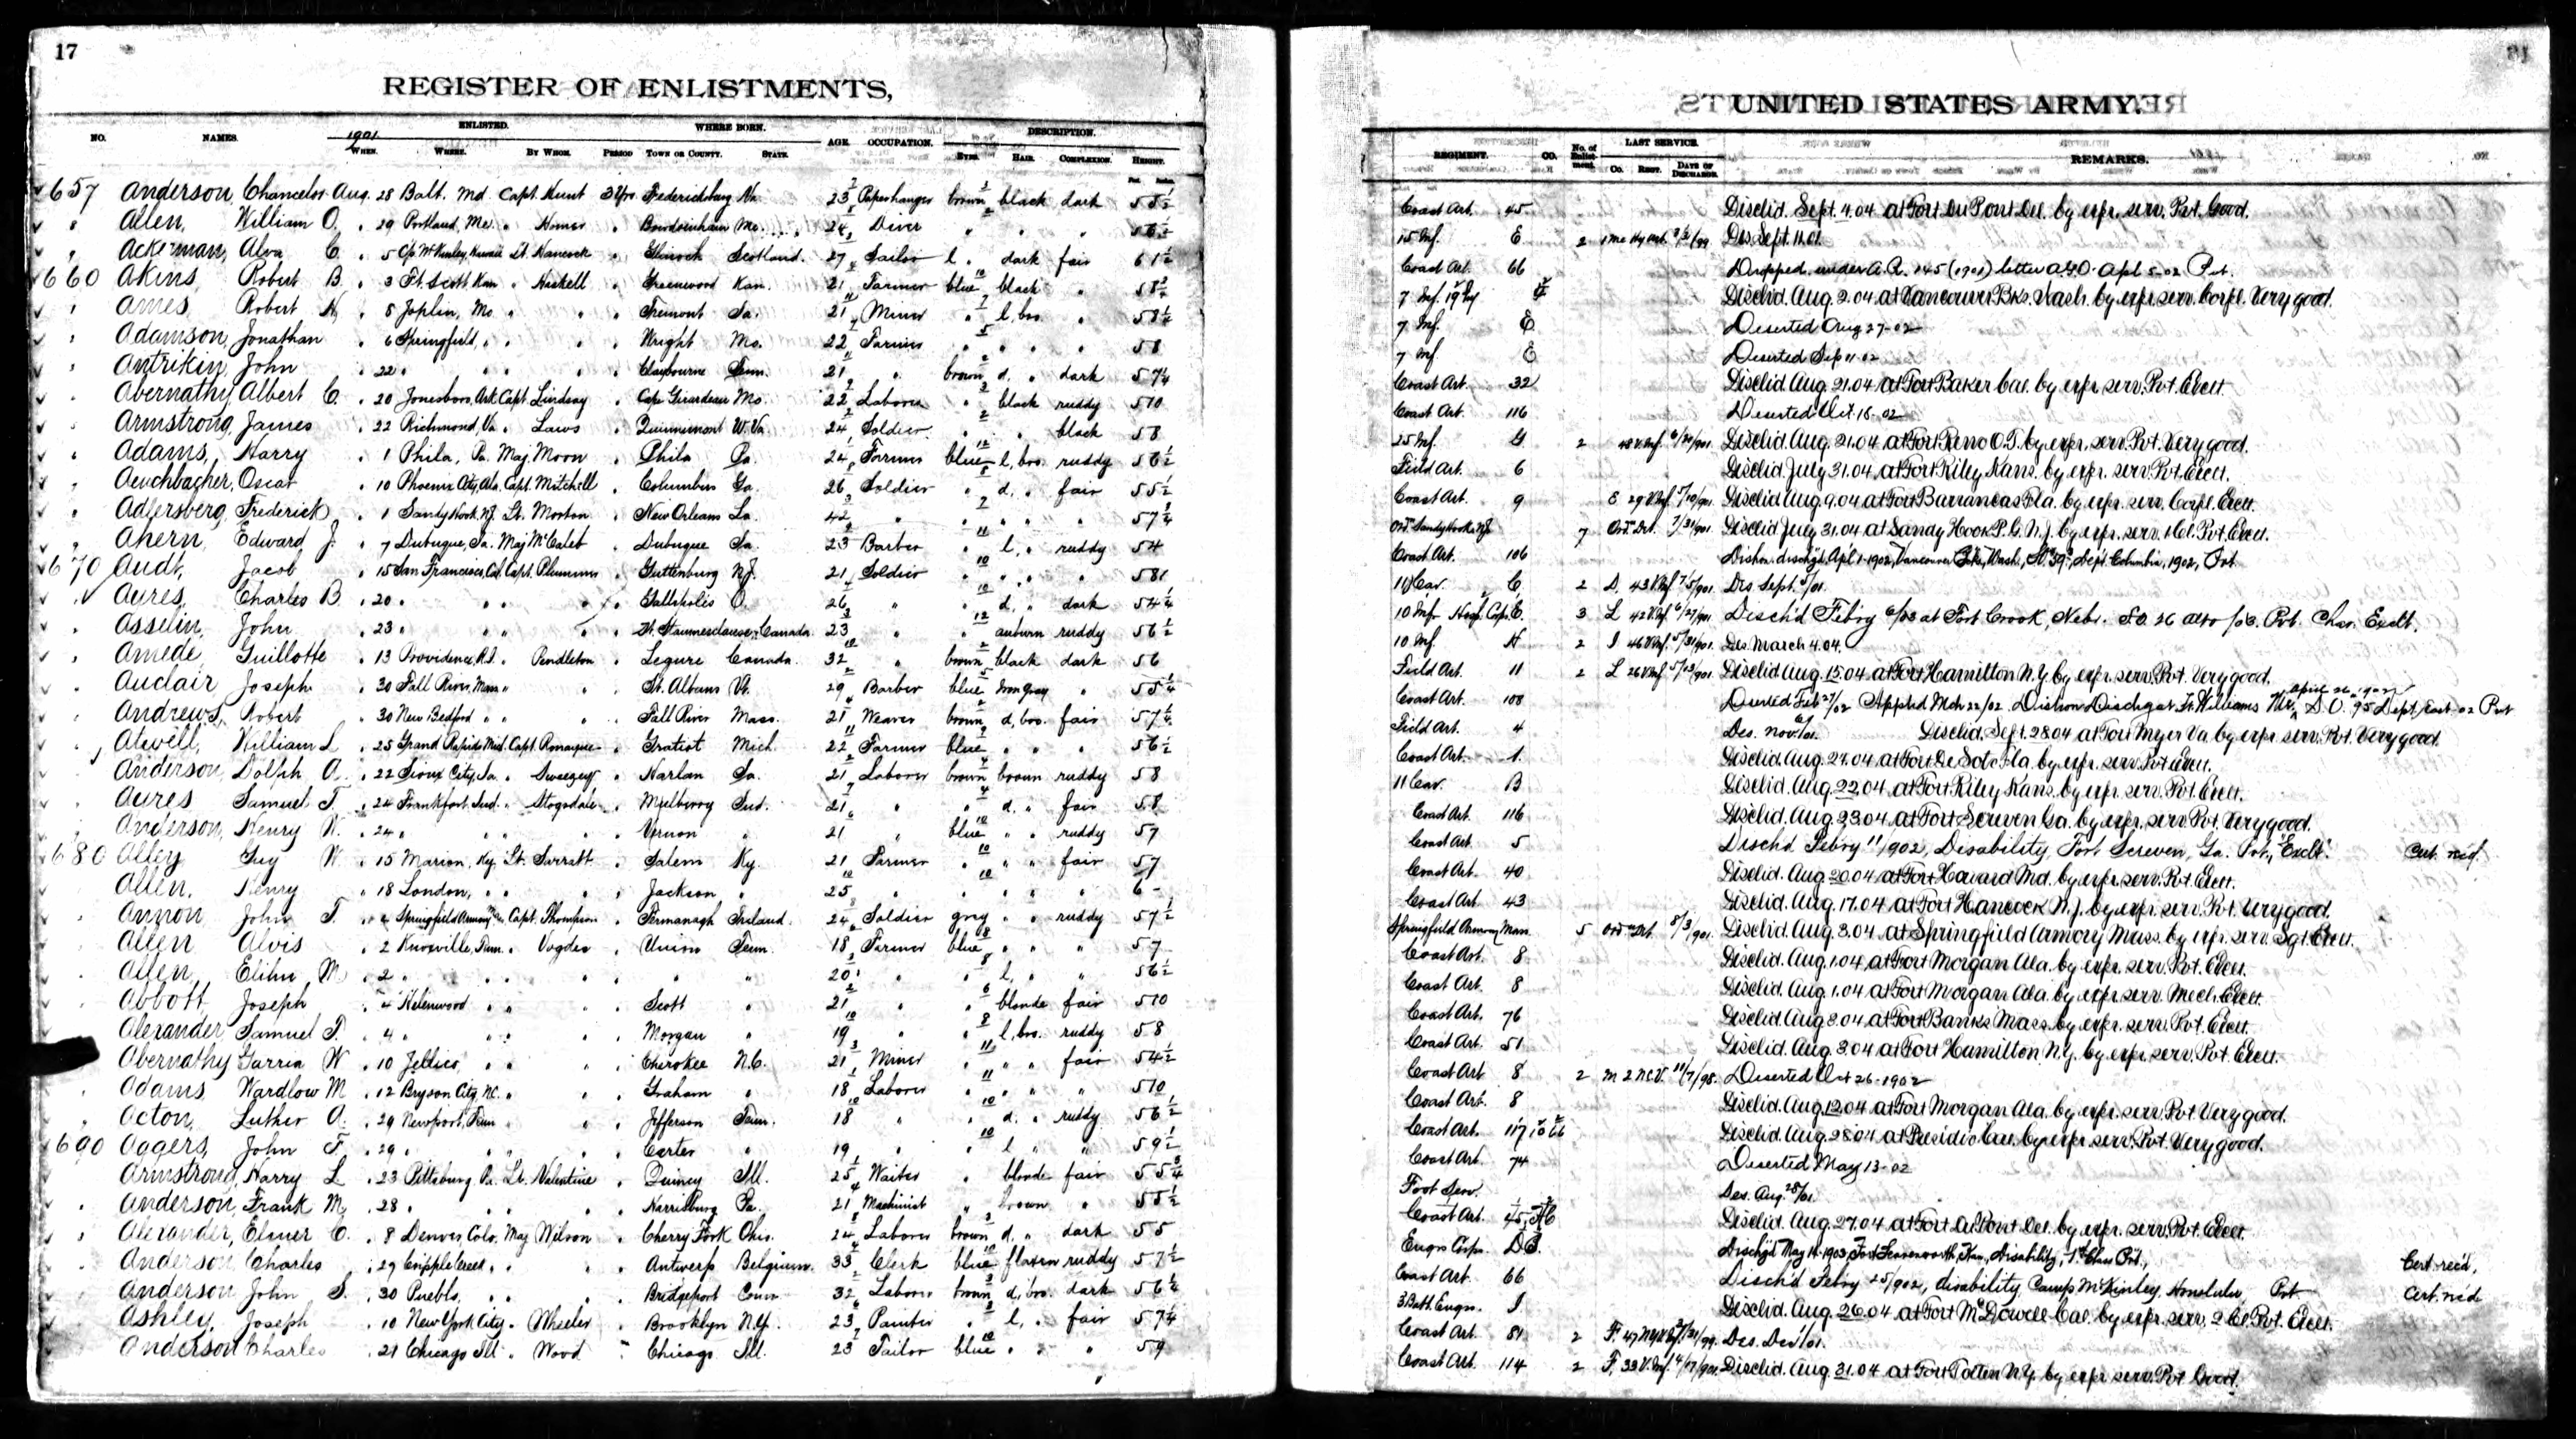 17
REGISTER OF ENLISTMENTS,
NO. NAMES. ENLISTED. WHERE BORN. AGE OCCUPATION. DESCRIPTION.
1901
WHEN. WHERE. BY WHOM. PERIOD TOWN OR COUNTY. STATE. EYES. HAIR. COMPLEXION. HEIGHT.
657 Anderson, Chancelor Aug. 28 Balt. Md. Capt. Hunt 3 Yrs. Fredericksburg Va. 23 Paperhanger brown black dark 5 5½
" Allen, William O. " 29 Portland, Me. " Homer " Bowdoinham Me. 24 Diver " " "
" Ackerman, Alva C. " 5 Cp McKinley, Hawaii Lt. Hancock " Scotland. 27 Sailor l. " dark fair 6 1½
660 Akins, Robert B. " 3 Ft. Scott Kan " Haskell " Greenwood Kan. 21 Farmer blue black "
" Ames, Robert H. " 5 Joplin, Mo " " " Fremont Ia. 21 Miner " l. bro. "
" Adamson, Jonathan " 6 Springfield, " " " Wright Mo. 22 Farmer " " " 5 8
" Antrikin, John " 22 " " " " Claybourne Tenn. 21 " brown d. " dark 5 7¼
" Abernathy Albert C. " 20 Jonesboro, Ark Capt. Lindsay " Cape Girardeau Mo. 22 Laborer " black ruddy 5 10
" Armstrong, James " 22 Richmond, Va. " Laws " Quinnimont W. Va. 24 Soldier " " black 5 8
" Adams, Harry " 1 Phila, Pa. Maj. Moon " Phila Pa. 24 Farmer blue l. bro. ruddy 5 6½
" Aeuchbacher, Oscar " 10 Phoenix City, Ala. Capt. Mitchell " Columbus Ga. 26 Soldier " d. " fair 5 5½
" Adlersberg, Frederick " 1 Sandy Hook NJ. Lt. Morton " New Orleans La. 42 " " " "
" Ahern, Edward J. " 7 Dubuque, Ia. Maj McCaleb " Dubuque Ia. 23 Barber " l. " ruddy 5 4
670 Audt, Jacob " 15 San Francisco, Cal. Capt. Plummer " Guttenburg N.J. 21 Soldier " " " "
" Aures, Charles B. " 20 " " " " Gallipolis O. 26 " " d. " dark 5 4¼
" Asselin, John " 23 " " " " Canada. 23 " " auburn ruddy 5 6½
" Amede, Guillotte " 13 Providence, R.I. " Pendleton " Legure Canada. 32 " brown black dark 5 6
" Auclair Joseph " 30 Fall River, Mass " " " St. Albans Vt. 29 Barber blue Iron Gray " 5 5¼
" Andrews, Robert " 30 New Bedford " " " " Fall River Mass. 21 Weaver brown d. bro. fair
" Atwell, William L " 25 Grand Rapids Mich. Capt. Romayne " Gratiot Mich. 22 Farmer blue " " " 5 6½
" Anderson, Dolph A. " 22 Sioux City, Ia. " Sweezey " Harlan Ia. 21 Laborer brown brown ruddy 5 8
" Aures Samuel T. " 24 Frankfort, Ind. " Stogsdale " Mulberry Ind. 21 " " d. " fair 5 8
" Anderson, Henry W. " 24 " " " " Vernon " 21 " blue " " ruddy 5 7
680 Alley Guy W. " 15 Marion, Ky. Lt. Sarratt " Salem Ky. 21 Farmer " " " fair 5 7
" Allen, Henry " 18 London, " " " Jackson " 25 " " " " " 6 -
" Annon John T. " 4 Springfield Armory Mass. Capt. Thompson " Fermanagh Ireland. 24 Soldier gray " " ruddy 5 7½
" Allen Alvis " 2 Knoxville, Tenn. " Vogdes " Union Tenn. 18 Farmer blue " " " 5 7
" Allen, Elihu M. " 2 " " " " " " 20 " " l. " " 5 6½
" Abbott, Joseph " 4 Helenwood " " " Scott " 21 " " blonde fair 5 10
" Alexander, Samuel T. " 4 " " " Morgan " 19 " " l. bro. ruddy 5 8
" Abernathy Garria W " 10 Jellico, " " " Cherokee N.C. 21 Miner " " " fair 5 4½
" Adams, Wardlow M " 12 Bryson City, N.C. " " " Graham " 18 Laborer " " " " 5 10
" Acton, Luther A. " 29 Newport, Tenn " " " Jefferson Tenn. 18 " " d. " ruddy 5 6½
690 Aagers, John F. " 29 " " " " Carter " 19 " " l " " 5 9½
" Armstrong, Harry L " 23 Pittsburg Pa. Lt. Valentine " Quincy Ill. 25 Waiter " blonde fair 5 5¾
" Anderson, Frank M. " 28 " " " " Harrisburg Pa. 21 Machinist " brown " 5 5½
" Alexander, Elmer C. " 8 Denver, Colo. Maj Wilson " Cherry Fork Ohio. 24 Laborer brown d. " dark 5 5
" Anderson Charles " 29 Cripple Creek " " " Antwerp Belgium. 33 Clerk blue flaxen ruddy 5 7½
" Anderson John S. " 30 Pueblo, " " " Bridgeport Conn. 32 Laborer brown d. bro. dark 5 6¼
Ashley, Joseph " 10 New York City " Wheeler " Brooklyn N.Y. 23 Painter " l. " fair 5 7¼
Anderson Charles " 21 Chicago Ill " Wood " Chicago Ill. 23 Tailor blue " " " 5 9
UNITED STATES ARMY.
REGIMENT. CO. No. of Enlistment. LAST SERVICE. REMARKS.
Co. Regt. DATE OF DISCHARGE.
Coast Art. 45 Disclid. Sept. 4. 04 at Fort Du Pont Del. by exp. serv. Pvt. Good.
15 Inf. E 2 Des. Sept. 11. 01.
Coast Art. 66 Dropped under A.R. 145 (1901) letter A.G.O. Apl 5-02 Pvt.
7 Inf. 19 Disclid. Aug. 2. 04 at Vancouver Bks. Wash. by exp. serv. Corpl. Very good.
7 Inf. E Deserted Aug 27-02
7 Inf. E Deserted Sep 11-02
Coast Art. 32 Disclid. Aug. 21. 04 at Fort Baker Cal. by exp. serv. Pvt. Excel.
Coast Art. 116 Deserted Oct. 18-02
25 Inf. G 2 48 V. Inf. 6/30/901. Disclid. Aug. 21. 04 at Fort Reno O.T. by exp. serv. Pvt. Very good.
Field Art. 6 Disclid. July 31. 04 at Fort Riley Kans. by exp. serv. Pvt. Excel.
Coast Art. 9 E 29 V. Inf. 5/10/901. Disclid. Aug. 9. 04 at Fort Barrancas Fla. by exp. serv. Corpl. Excel.
Ord. Sandy Hook NJ. 7 Ord. Det. 7/31/901. Disclid. July 31. 04 at Sandy Hook P.G. N.J. by exp. serv. 1 Cl. Pvt. Excel.
Coast Art. 106 Dishon. dischgd. Apl 1-1902, Vancouver Bks., Wash., Dept. Columbia, 1902, Pvt.
11 Cav. C. 2 D. 43 V. Inf. 7/5/901. Des. Sept. 5/01.
10 Inf. Hosp. Corps E. 3 L 42 V. Inf. 6/27/901 Disch'd Febry 6/03 at Fort Crook, Nebr. Pvt. Char. Exclt.
10 Inf. H 2 I 46 V. Inf. 5/31/901. Des. March 4. 04.
Field Art. 11 2 L 26 V. Inf. 5/13/901. Disclid. Aug. 15. 04 at Fort Hamilton N.Y. by exp. serv. Pvt. Very good.
Coast Art. 108 Deserted Feb 27/02 Apphd Mch 22/02. Dishon Dischg at Ft. Williams Me. April 26, 1902 S.O. 95 Dept. East 02 Pvt
Field Art. 4 Des. Nov. 6/01. Disclid. Sept. 28. 04 at Fort Myer Va. by exp. serv. Pvt. Very good.
Coast Art. 1. Disclid. Aug. 24. 04 at Fort De Soto Fla. by exp. serv. Pvt. Excel.
11 Cav. B Disclid. Aug. 22. 04 at Fort Riley Kans. by exp. serv. Pvt. Excel.
Coast Art. 116 Disclid. Aug. 23. 04 at Fort Screven Ga. by exp. serv. Pvt. Very good.
Coast Art. 5 Disch'd Febry 11/1902, Disability, Fort Screven, Ga. Pvt., "Exclt." Cert. rec'd.
Coast Art. 40 Disclid. Aug. 20. 04 at Fort Howard Md. by exp. serv. Pvt. Excel.
Coast Art. 43 Disclid. Aug. 17. 04 at Fort Hancock N.J. by exp. serv. Pvt. Very good.
Springfield Armory Mass. 5 Ord. Det. 8/3/901. Disclid. Aug. 3. 04 at Springfield Armory Mass. by exp. serv. Sgt. Excel.
Coast Art. 8 Disclid. Aug. 1. 04 at Fort Morgan Ala. by exp. serv. Pvt. Excel.
Coast Art. 8 Disclid. Aug. 1. 04 at Fort Morgan Ala. by exp. serv. Mech. Excel.
Coast Art. 76 Disclid. Aug. 3. 04 at Fort Banks Mass. by exp. serv. Pvt. Excel.
Coast Art. 51 Disclid. Aug. 3. 04 at Fort Hamilton N.Y. by exp. serv. Pvt. Excel.
Coast Art 8 2 M 2 N.C.V. 11/7/98. Deserted Oct 26-1902
Coast Art. 8 Disclid. Aug. 12. 04 at Fort Morgan Ala. by exp. serv. Pvt. Very good.
Coast Art. 117 to 66 Disclid. Aug. 28. 04 at Presidio Cal. by exp. serv. Pvt. Very good.
Coast Art. 74 Deserted May 13-02
Foot Serv. Des. Aug. 28/01.
Coast Art. 45 Disclid. Aug. 27. 04 at Fort Du Pont Del. by exp. serv. Pvt. Excel.
Engr. Corps. Disch'gd May 14-1903, Fort Leavenworth, Kan., Disability, 1st Class Pvt., Cert. rec'd,
Coast Art. 66 Disch'd Febry 25/1902, disability Camp McKinley, Honolulu, Pvt Cert. rec'd
3 Batt. Engrs. I. Disclid. Aug. 26. 04 at Fort McDowell Cal. by exp. serv. 2 Cl. Pvt. Excel.
Coast Art. 81 2 F. 47 Des. Dec 1/01.
Coast Art. 114 2 F. 33 V. Inf. 4/17/901. Disclid. Aug. 31. 04 at Fort Totten N.Y. by exp. serv. Pvt Good.